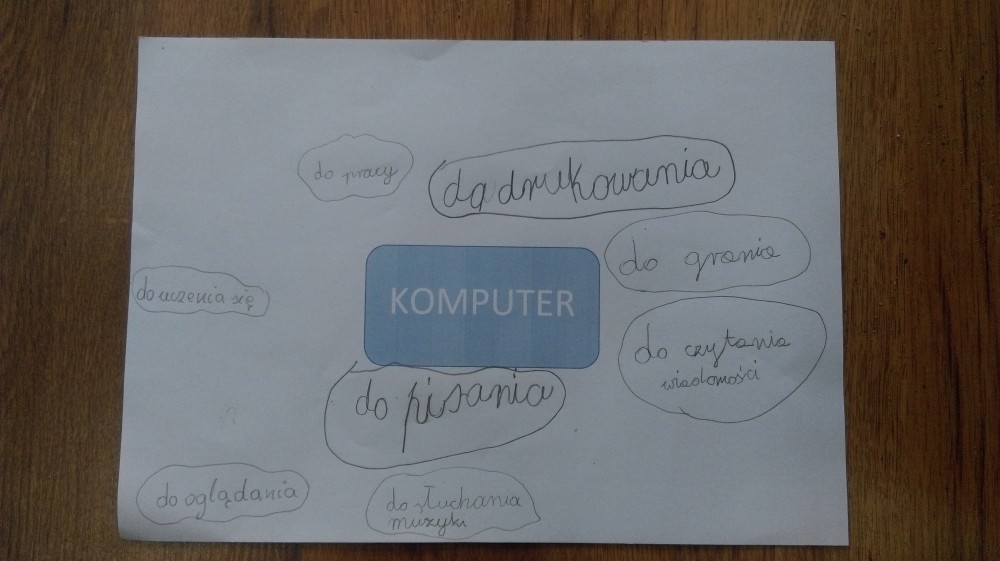 do pracy
do drukowania
do grania
do uczenia się
KOMPUTER
do czytania
wiadomości
do pisania
do oglądania
do słuchania
muzyki